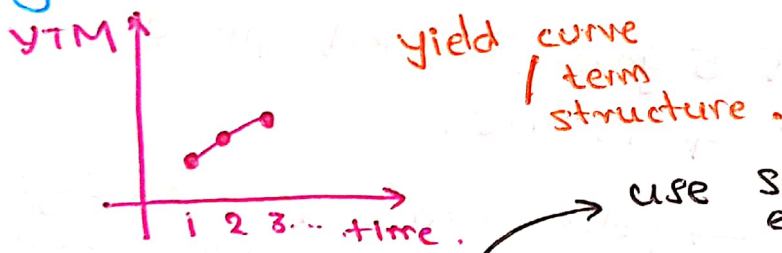 YTM
yield curve
/ term
structure.
1 2 3... time.
use